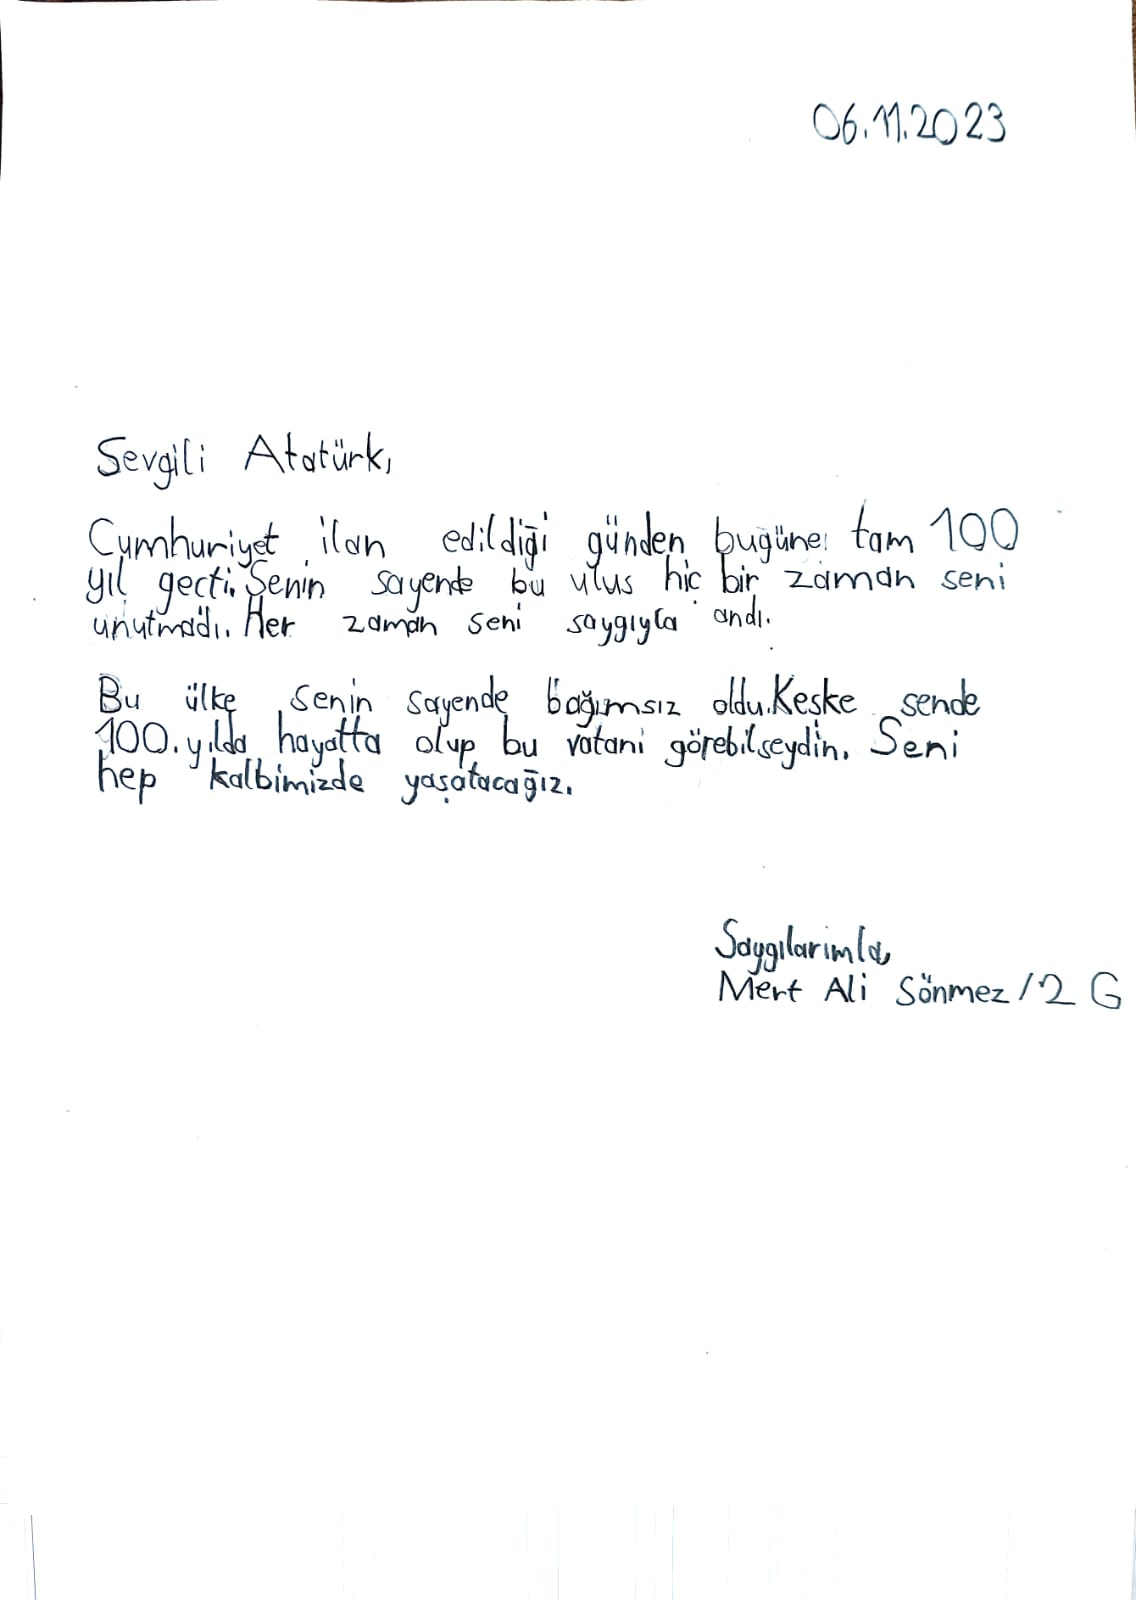 06.11.2023
Sevgili Atatürk,
Cumhuriyet ilan edildiği günden bugüne tam 100
yıl geçti. Senin sayende bu ulus hiç bir zaman seni
unutmadı. Her zaman seni saygıyla andı.
Bu ülke senin sayende bağımsız oldu. Keşke sende
100. yılda hayatta olup bu vatani görebilseydin. Seni
hep kalbimizde yaşatacağız.
Saygılarımla,
Mert Ali Sönmez / 2 G